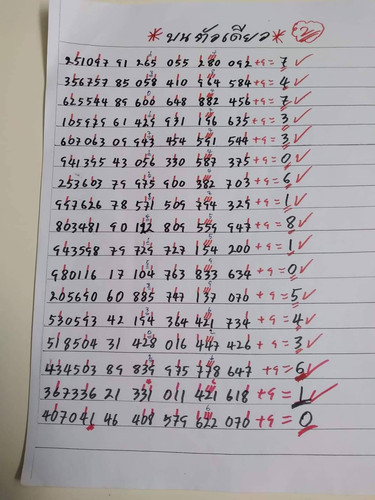 * บน ตัวเดียว * 2
251097 91 265 055 280 092 +9 = 7 ✓
356757 85 058 410 964 584 +9 = 4 ✓
625544 89 600 648 882 456 +9 = 7 ✓
105979 61 425 931 196 635 +9 = 3 ✓
607063 09 943 454 591 544 +9 = 3 ✓
941395 43 056 330 587 375 +9 = 0 ✓
253603 79 975 900 382 703 +9 = 6 ✓
997626 78 571 509 794 329 +9 = 1 ✓
803481 90 122 809 559 947 +9 = 8 ✓
943598 79 729 727 154 200 +9 = 1 ✓
980116 17 104 763 833 634 +9 = 0 ✓
205690 60 885 747 137 070 +9 = 5 ✓
530593 42 194 364 421 734 +9 = 4 ✓
518504 31 428 016 447 426 +9 = 3 ✓
434503 89 839 975 778 647 +9 = 6 ✓
367336 21 331 011 421 618 +9 = 1 ✓
407041 46 408 579 622 070 +9 = 0